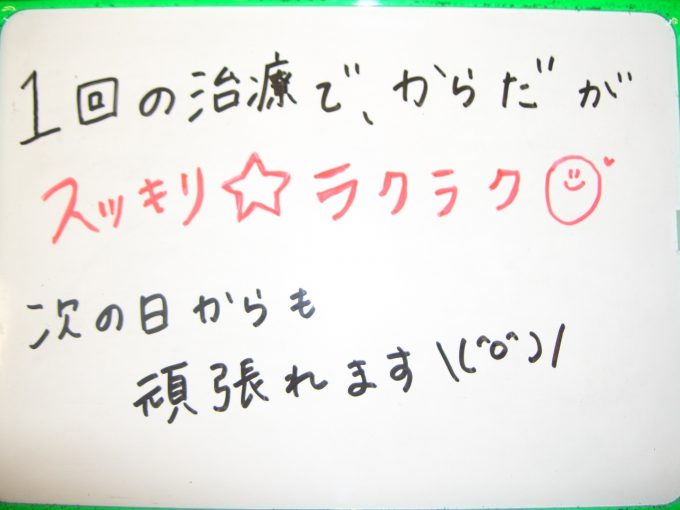 1回の治療で、からだが
スッキリ☆ラクラク
次の日からも
頑張れます\(^o^)/